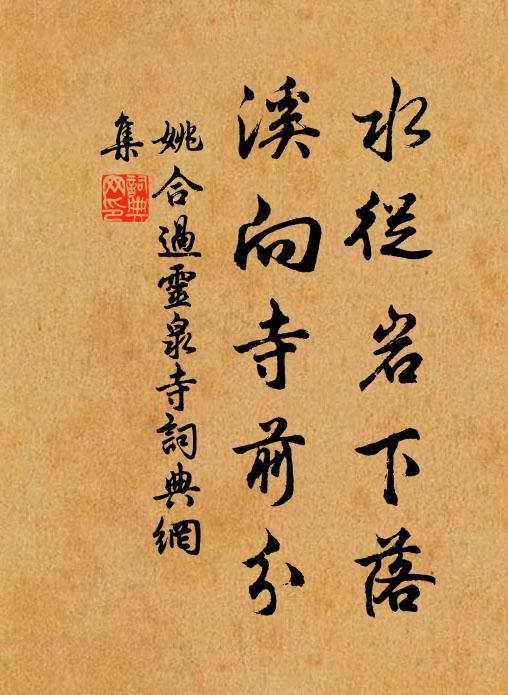 水從岩下落
溪向寺前分
姚合過靈泉寺詞典網
集
詞典
网印